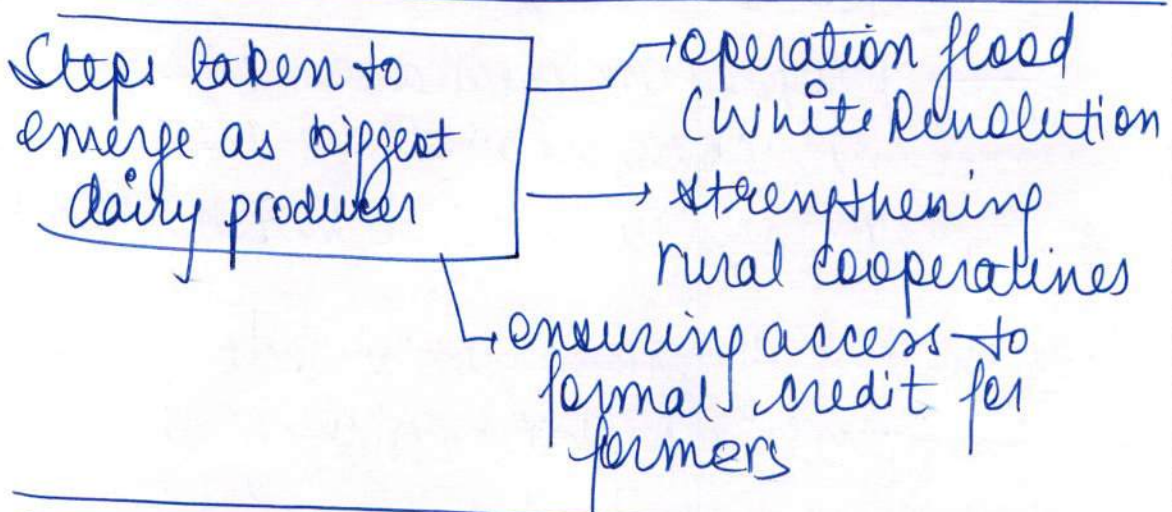 Steps taken to
emerge as biggest
dairy producer
operation flood
(White Revolution
strengthening
rural cooperatives
ensuring access to
formal credit for
farmers